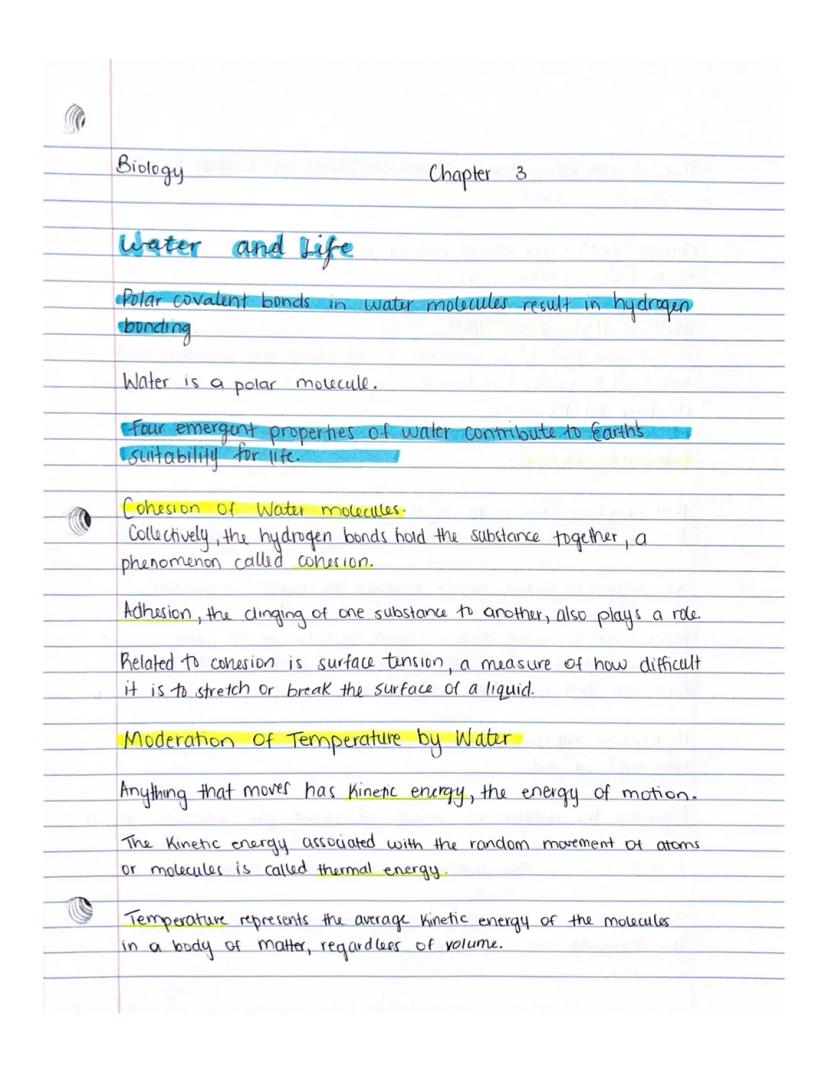 Biology Chapter 3
Water and Life
Polar covalent bonds in water molecules result in hydrogen
bonding
Water is a polar molecule.
Four emergent properties of water contribute to Earth's
suitability for life.
Cohesion of Water molecules.
Collectively, the hydrogen bonds hold the substance together, a
phenomenon called cohesion.
Adhesion, the clinging of one substance to another, also plays a role.
Related to cohesion is surface tension, a measure of how difficult
it is to stretch or break the surface of a liquid.
Moderation of Temperature by Water
Anything that moves has Kinetic energy, the energy of motion.
The Kinetic energy associated with the random movement of atoms
or molecules is called thermal energy.
Temperature represents the average Kinetic energy of the molecules
in a body of matter, regardless of volume.